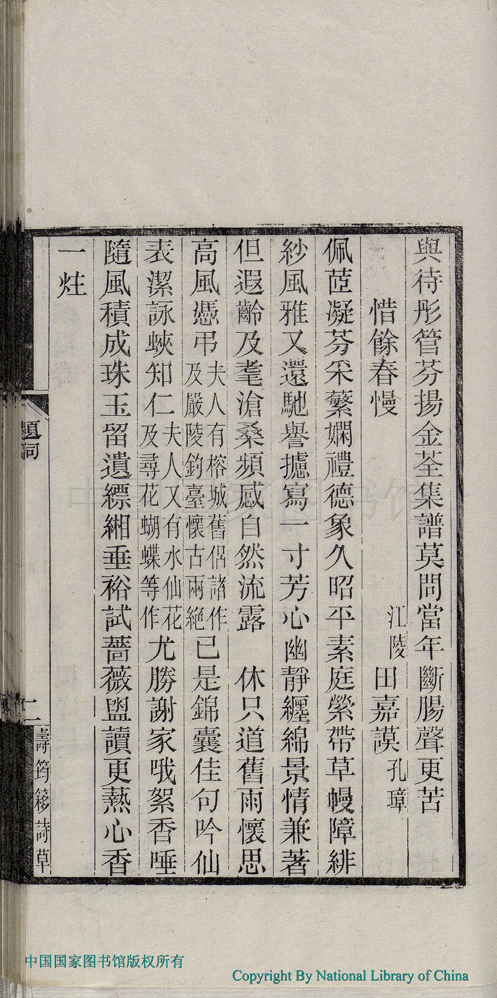 與待彤管芬揚金荃集譜莫問當年斷腸聲更苦
惜餘春慢
江陵 田嘉謨 孔璋
佩茝凝芬采蘩嫻禮德象久昭平素庭縈帶草幔障緋
紗風雅又還馳譽攄寫一寸芳心幽靜纏綿景情兼著
但遐齡及耄滄桑頻感自然流露 休只道舊雨懷思
高風憑弔夫人有榕城舊侶諸作及嚴陵釣臺懷古兩絕已是錦囊佳句吟仙
表潔詠蛺知仁夫人又有水仙花及尋花蝴蝶等作尤勝謝家哦絮香唾
隨風積成珠玉留遺縹緗垂裕試薔薇盥讀更熱心香
一炷
題詞
二
壽筠簃詩草
中国国家图书馆版权所有
Copyright By National Library of China